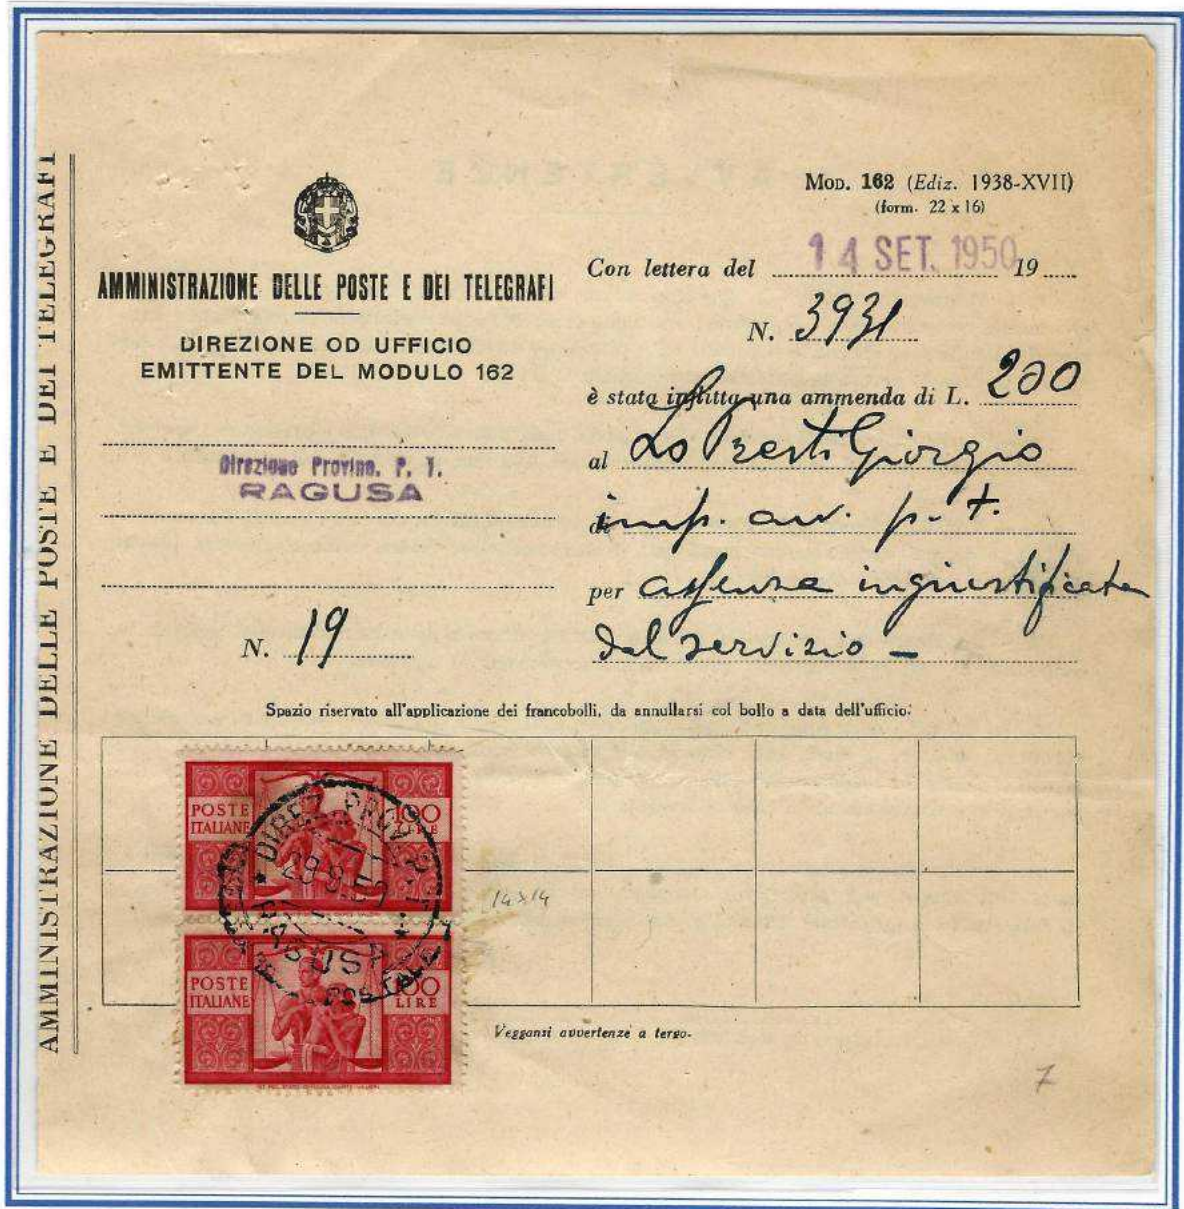 AMMINISTRAZIONE DELLE POSTE E DEI TELEGRAFI
MOD. 162 (Ediz. 1938-XVII)
(form. 22 x 16)
AMMINISTRAZIONE DELLE POSTE E DEI TELEGRAFI
DIREZIONE OD UFFICIO
EMITTENTE DEL MODULO 162
Direzione Provinc. P. T.
RAGUSA
N. 19
Con lettera del 14 SET. 1950 19
N. 3931
è stata inflitta una ammenda di L. 200
al Lo Presti Giorgio
di imp. av. p. t.
per assenza ingiustificata
dal servizio -
Spazio riservato all'applicazione dei francobolli, da annullarsi col bollo a data dell'ufficio.
POSTE
ITALIANE
100
LIRE
DIREZ. PROV. P. T.
RAGUSA
14x14
POSTE
ITALIANE
100
LIRE
Veggansi avvertenze a tergo.
7